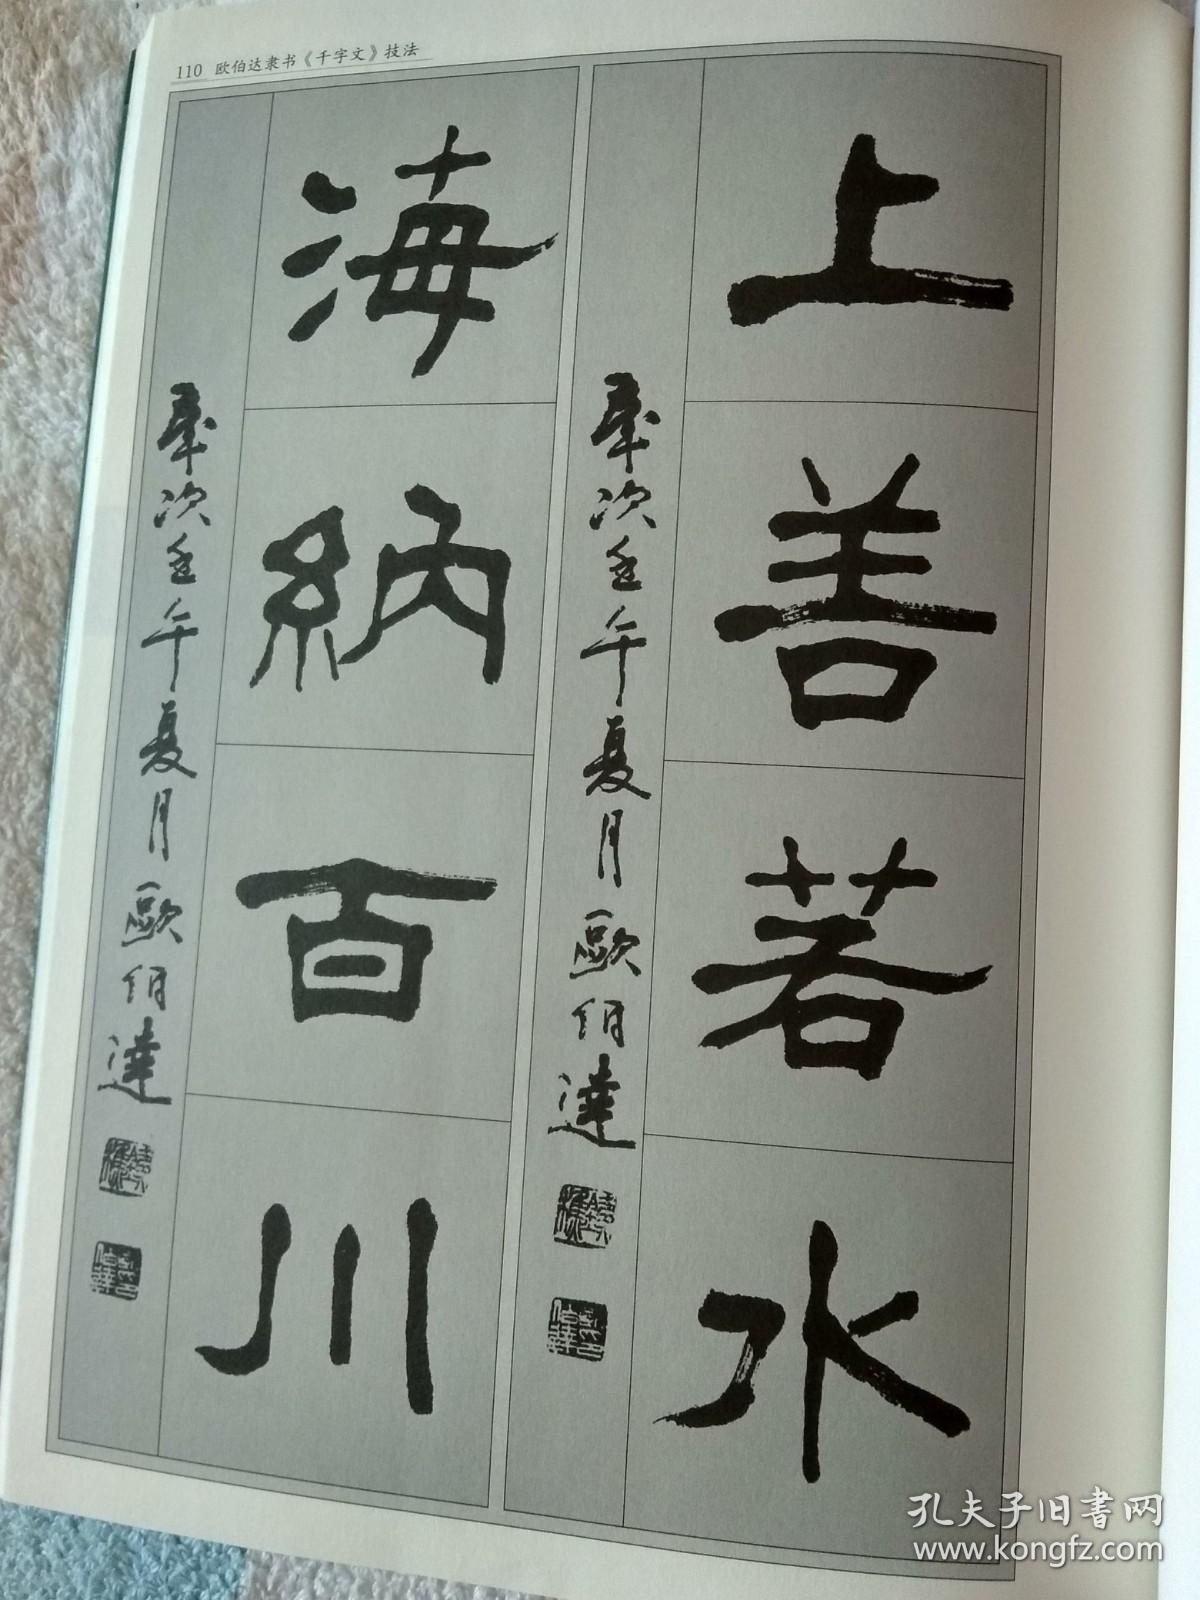 110 欧伯达隶书《千字文》技法
上善若水
歲次壬午夏月歐伯達
海納百川
歲次壬午夏月歐伯達
孔夫子旧书网
www.kongfz.com